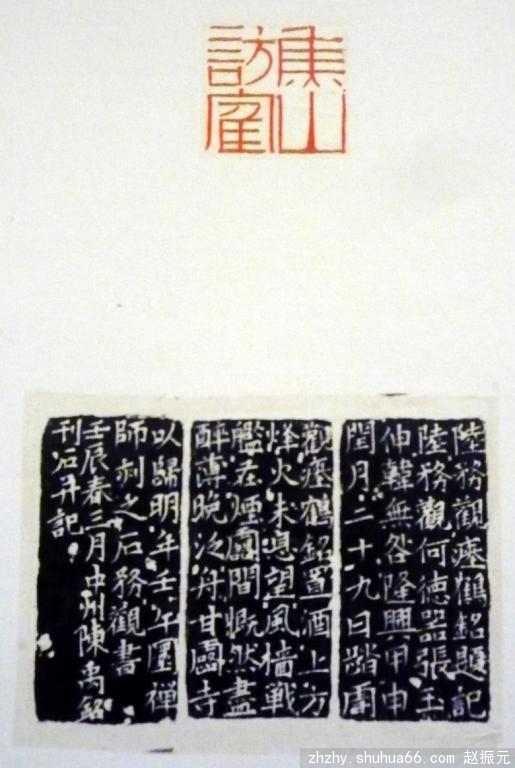 焦山
訪寉
陸務觀瘞鶴銘題記
陸務觀何德器張玉
仲韓無咎隆興甲申
閏月二十九日踏雪
觀瘞鶴銘置酒上方
烽火未息望風檣戰
艦在煙靄間慨然盡
醉薄晚泛舟甘露寺
以歸明年壬午圜禪
師刻之石務觀書
壬辰春三月中州陳禹銘
刊石并記
zhzhy.shuhua66.com 赵振元